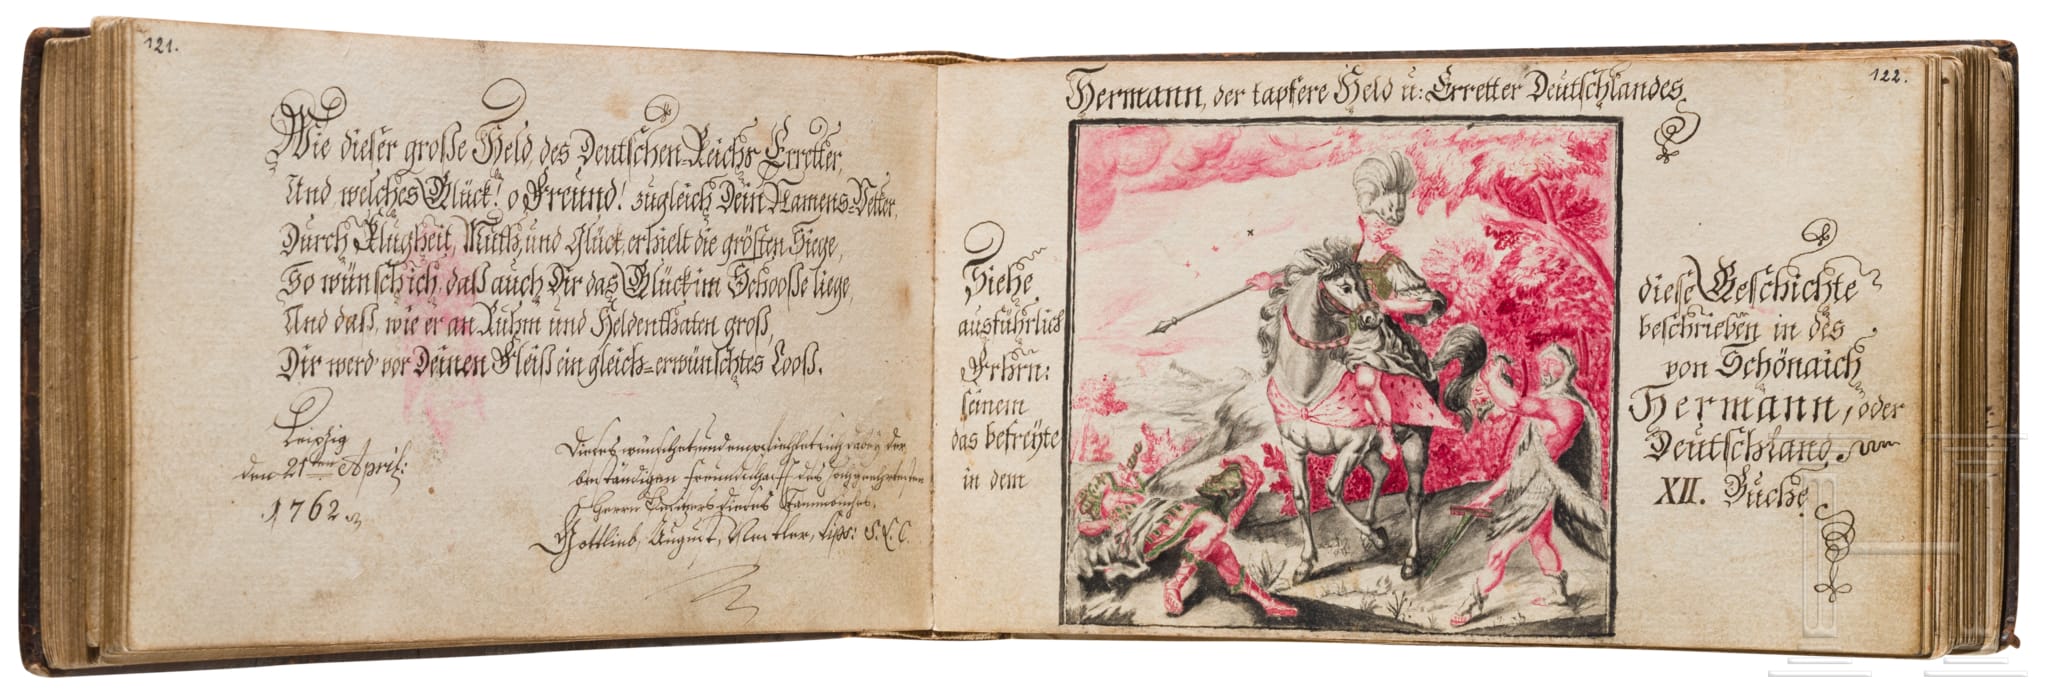 121.
Wie dieser große Held, des Deutschen-Reichs Erretter,
Und welches Glück! o Freund! zugleich Dein Namens-Vetter,
Durch Klugheit, Muth, und Glück, erhielt die grösten Siege,
So wünsch ich, daß auch Dir das Glück im Schooße liege,
Und daß, wie er an Ruhm und Heldenthaten groß,
Dir werd' vor Deinen Fleiß ein gleich-erwünschtes Looß.
Leipzig
den 21ten April:
1762.
Dieses wünschet und empfiehlet sich dabey der
beständigen Freundschafft des
Herrn Besitzers dieses Stammbuches,
Gottlieb, August, Lips: S. C.
122.
Hermann, der tapfere Held u: Erretter Deutschlandes
Siehe
ausführlich
Frhrn:
seinem
das befreyte
in dem
diese Geschichte
beschrieben in des
von Schönaich
Hermann, oder
Deutschland
XII. Buche